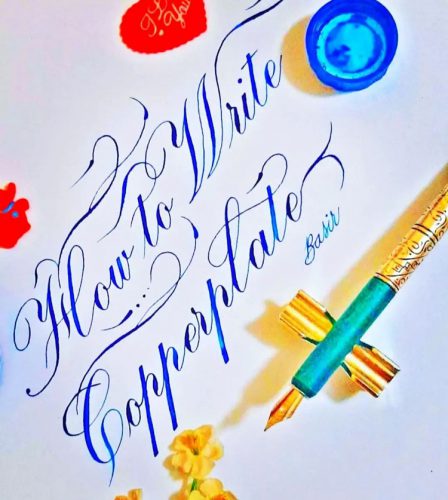 I L
You
How to Write
...
Copperplate
Basir